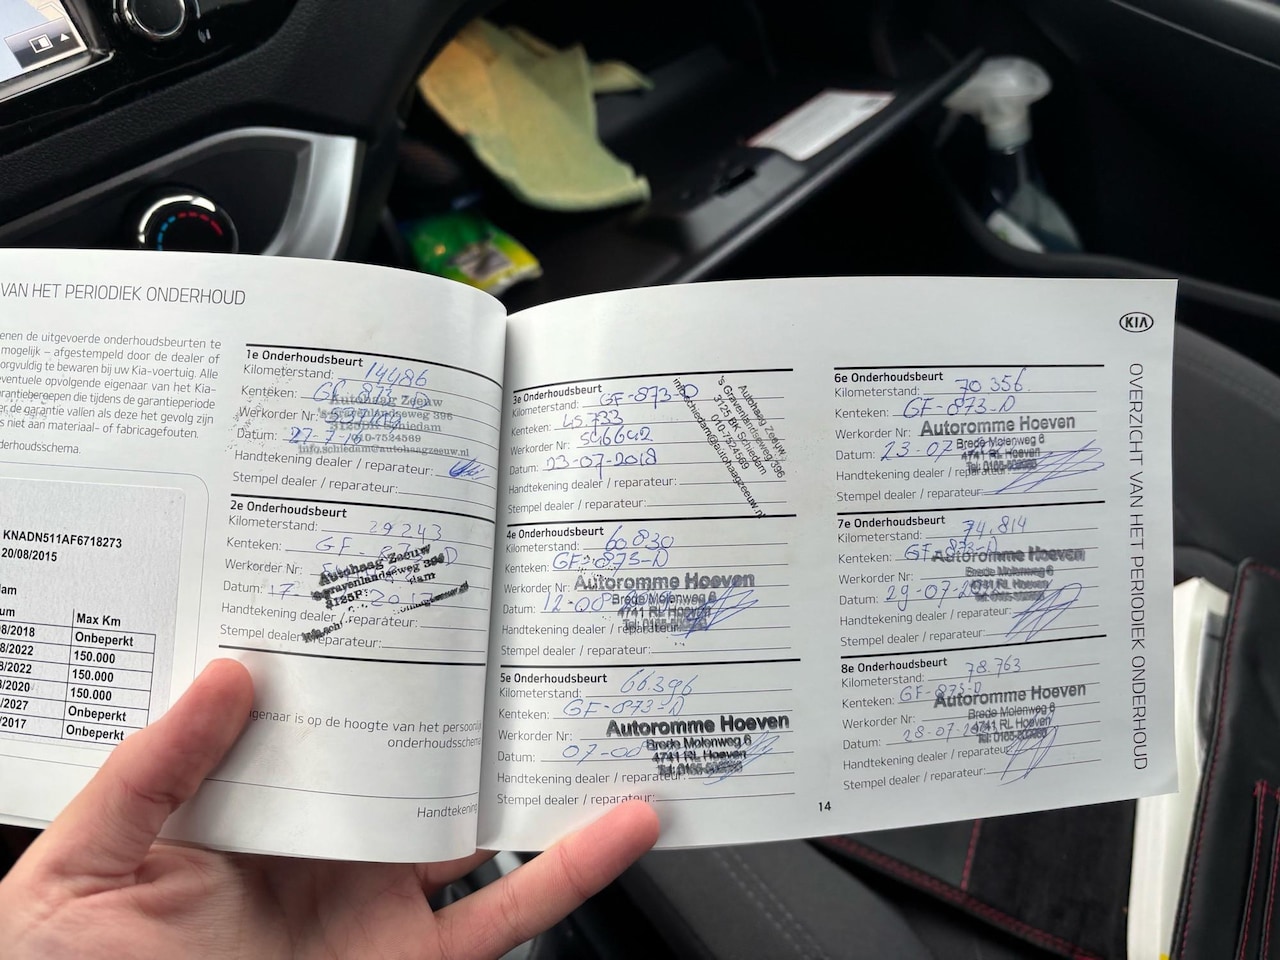 VAN HET PERIODIEK ONDERHOUD
enen de uitgevoerde onderhoudsbeurten te
mogelijk – afgestempeld door de dealer of
orgvuldig te bewaren bij uw Kia-voertuig. Alle
eventuele opvolgende eigenaar van het Kia-
rantieberoepen die tijdens de garantieperiode
er de garantie vallen als deze het gevolg zijn
s niet aan materiaal- of fabricagefouten.
derhoudsschema.
KNADN511AF6718273
20/08/2015
dam
um Max Km
08/2018 Onbeperkt
8/2022 150.000
8/2022 150.000
8/2020 150.000
/2027 Onbeperkt
/2017 Onbeperkt
1e Onderhoudsbeurt
Kilometerstand: 14486
Kenteken: GF-873-D
Werkorder Nr:
Datum: 27-7-
Handtekening dealer / reparateur:
Stempel dealer / reparateur:
Autohaag Zeeuw
's Gravenlandseweg 396
3125BK Schiedam
010-7524569
info.schiedam@autohaagzeeuw.nl
2e Onderhoudsbeurt
Kilometerstand: 29243
Kenteken: GF - D
Werkorder Nr:
Datum: 17-
Handtekening dealer / reparateur:
Stempel dealer / reparateur:
Autohaag Zeeuw
's Gravenlandseweg 396
eigenaar is op de hoogte van het persoonlijk
onderhoudsschema
Handtekening
3e Onderhoudsbeurt
Kilometerstand: GF-873-D
Kenteken: 45.733
Werkorder Nr: 546642
Datum: 23-07-2018
Handtekening dealer / reparateur:
Stempel dealer / reparateur:
Autohaag Zeeuw
's Gravenlandseweg 396
3125 BK Schiedam
010-7524569
info.schiedam@autohaagzeeuw.nl
4e Onderhoudsbeurt
Kilometerstand: 60830
Kenteken: GF-873-D
Werkorder Nr:
Datum: 12-08
Handtekening dealer / reparateur:
Stempel dealer / reparateur:
Autoromme Hoeven
Brede Molenweg 6
4741 RL Hoeven
5e Onderhoudsbeurt
Kilometerstand: 66.396
Kenteken: GF-873-D
Werkorder Nr:
Datum: 07-
Handtekening dealer / reparateur:
Stempel dealer / reparateur:
Autoromme Hoeven
Brede Molenweg 6
4741 RL Hoeven
KIA
6e Onderhoudsbeurt
Kilometerstand: 70 356
Kenteken: GF-873-D
Werkorder Nr:
Datum: 23-07
Handtekening dealer / reparateur:
Stempel dealer / reparateur:
Autoromme Hoeven
Brede Molenweg 6
4741 RL Hoeven
7e Onderhoudsbeurt
Kilometerstand: 74.814
Kenteken: GF-873-D
Werkorder Nr:
Datum: 29-07-
Handtekening dealer / reparateur:
Stempel dealer / reparateur:
Autoromme Hoeven
Brede Molenweg 6
4741 RL Hoeven
8e Onderhoudsbeurt
Kilometerstand: 78.763
Kenteken: GF-873-D
Werkorder Nr:
Datum: 28-07-
Handtekening dealer / reparateur:
Stempel dealer / reparateur:
Autoromme Hoeven
Brede Molenweg 6
4741 RL Hoeven
OVERZICHT VAN HET PERIODIEK ONDERHOUD
14